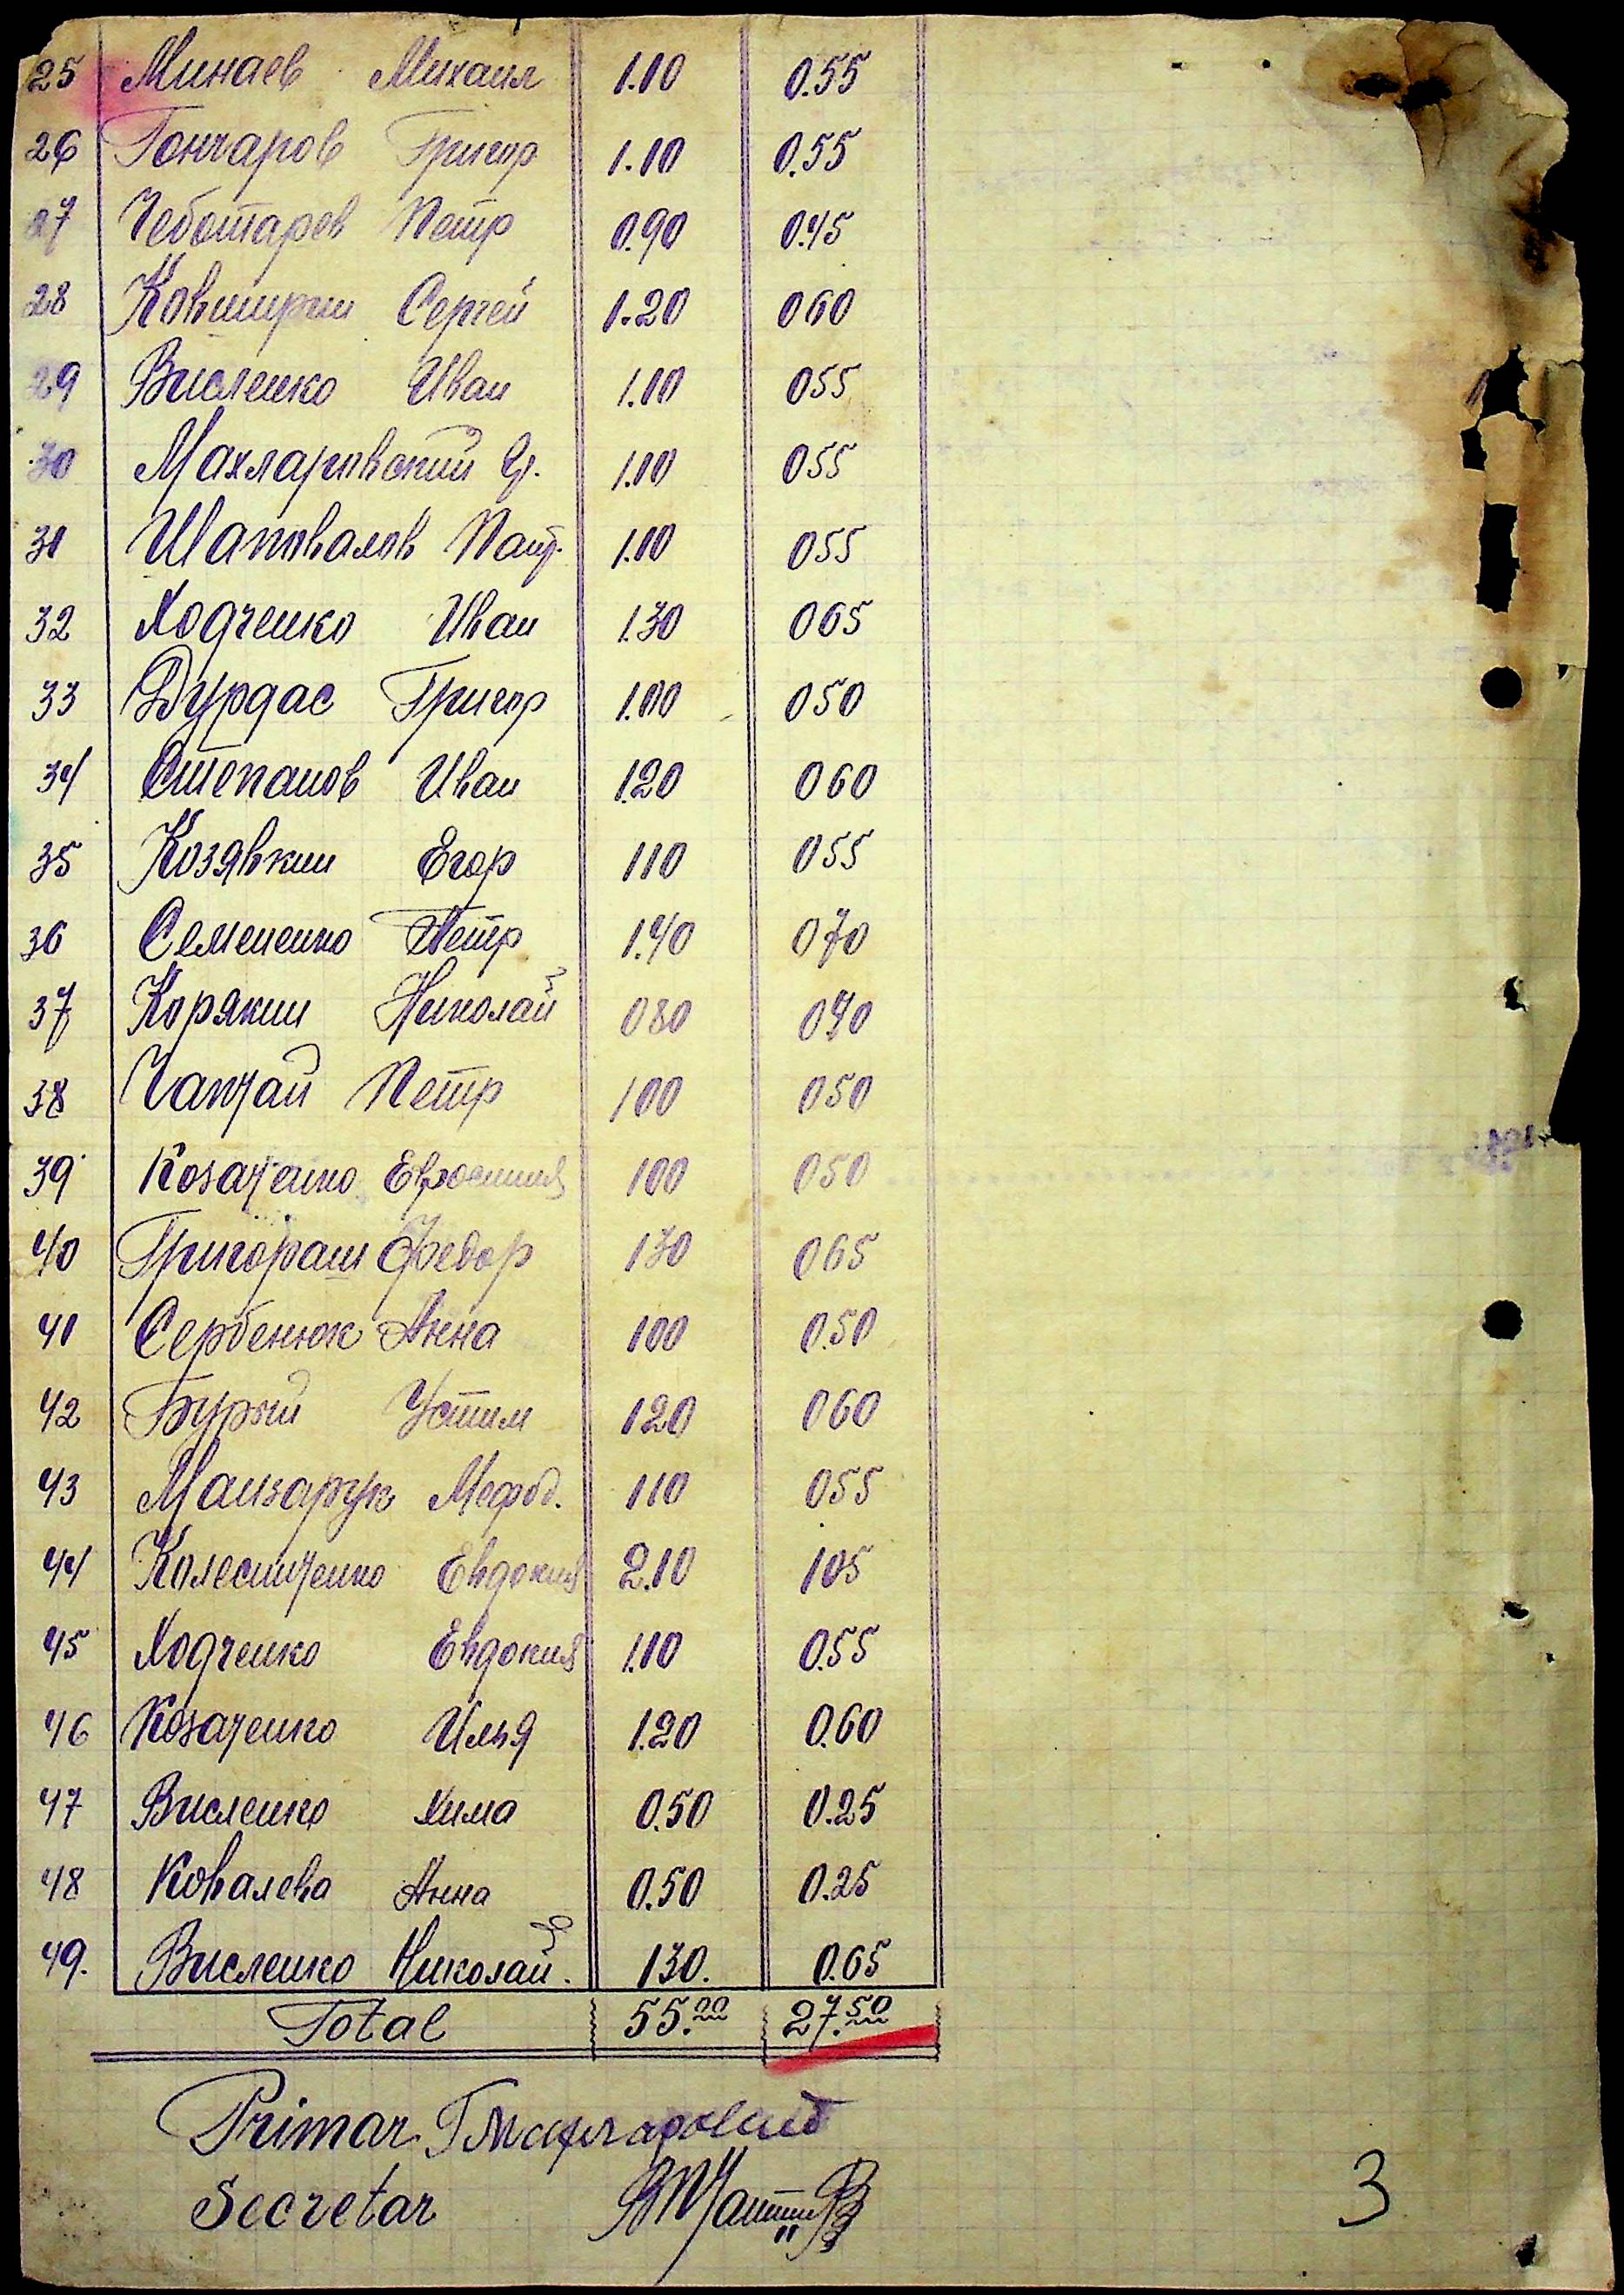 25 Минаев Михаил 1.10 0.55
26 Гончаров Григор 1.10 0.55
27 Чеботарев Петр 0.90 0.45
28 Сергей 1.20 060
29 Висленко Иван 1.10 055
30 Махларовский Г. 1.10 055
31 Шаповалов 1.10 055
32 Ходченко Иван 1.30 065
33 Дурдас Григор 1.00 050
34 Степанов Иван 1.20 060
35 Козявкин Егор 110 055
36 Семененко Петр 1.40 070
37 Корякин Николай 080 040
38 Чапчай Петр 100 050
39 Козаченко 100 050
40 Григораш Федор 130 065
41 Сербенюк Анна 100 0.50
42 Бурый Устим 120 060
43 Манзарук Мефод. 110 055
44 Колесниченко Евдокия 2.10 105
45 Ходченко Евдокия 1.10 0.55
46 Козаченко Илья 1.20 0.60
47 Висленко Хима 0.50 0.25
48 Ковалева Анна 0.50 0.25
49. Висленко Николай. 130. 0.65
Total 55.00 27.50
Primar Г Махларовский
Secretar
3